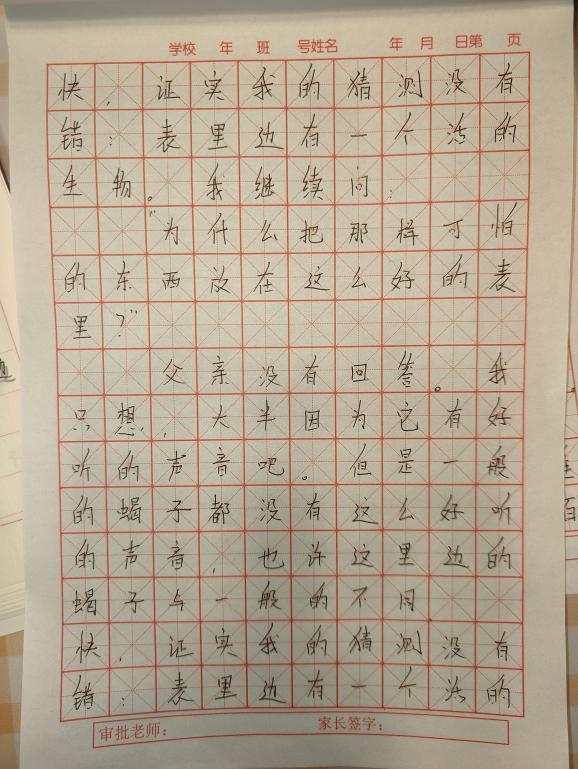 学校 年 班 号姓名 年 月 日第 页
快，证实我的猜测没有
错：表里边有一个活的
生物。我继续问：
“为什么把那样可怕
的东西放在这么好的表
里？”
父亲没有回答。我
只想，大半因为它有好
听的声音吧。但是一般
的蝎子都没有这么好听
的声音，也许这里边的
蝎子与一般的不同.
快，证实我的猜测没有
错：表里边有一个活的
审批老师： 家长签字：